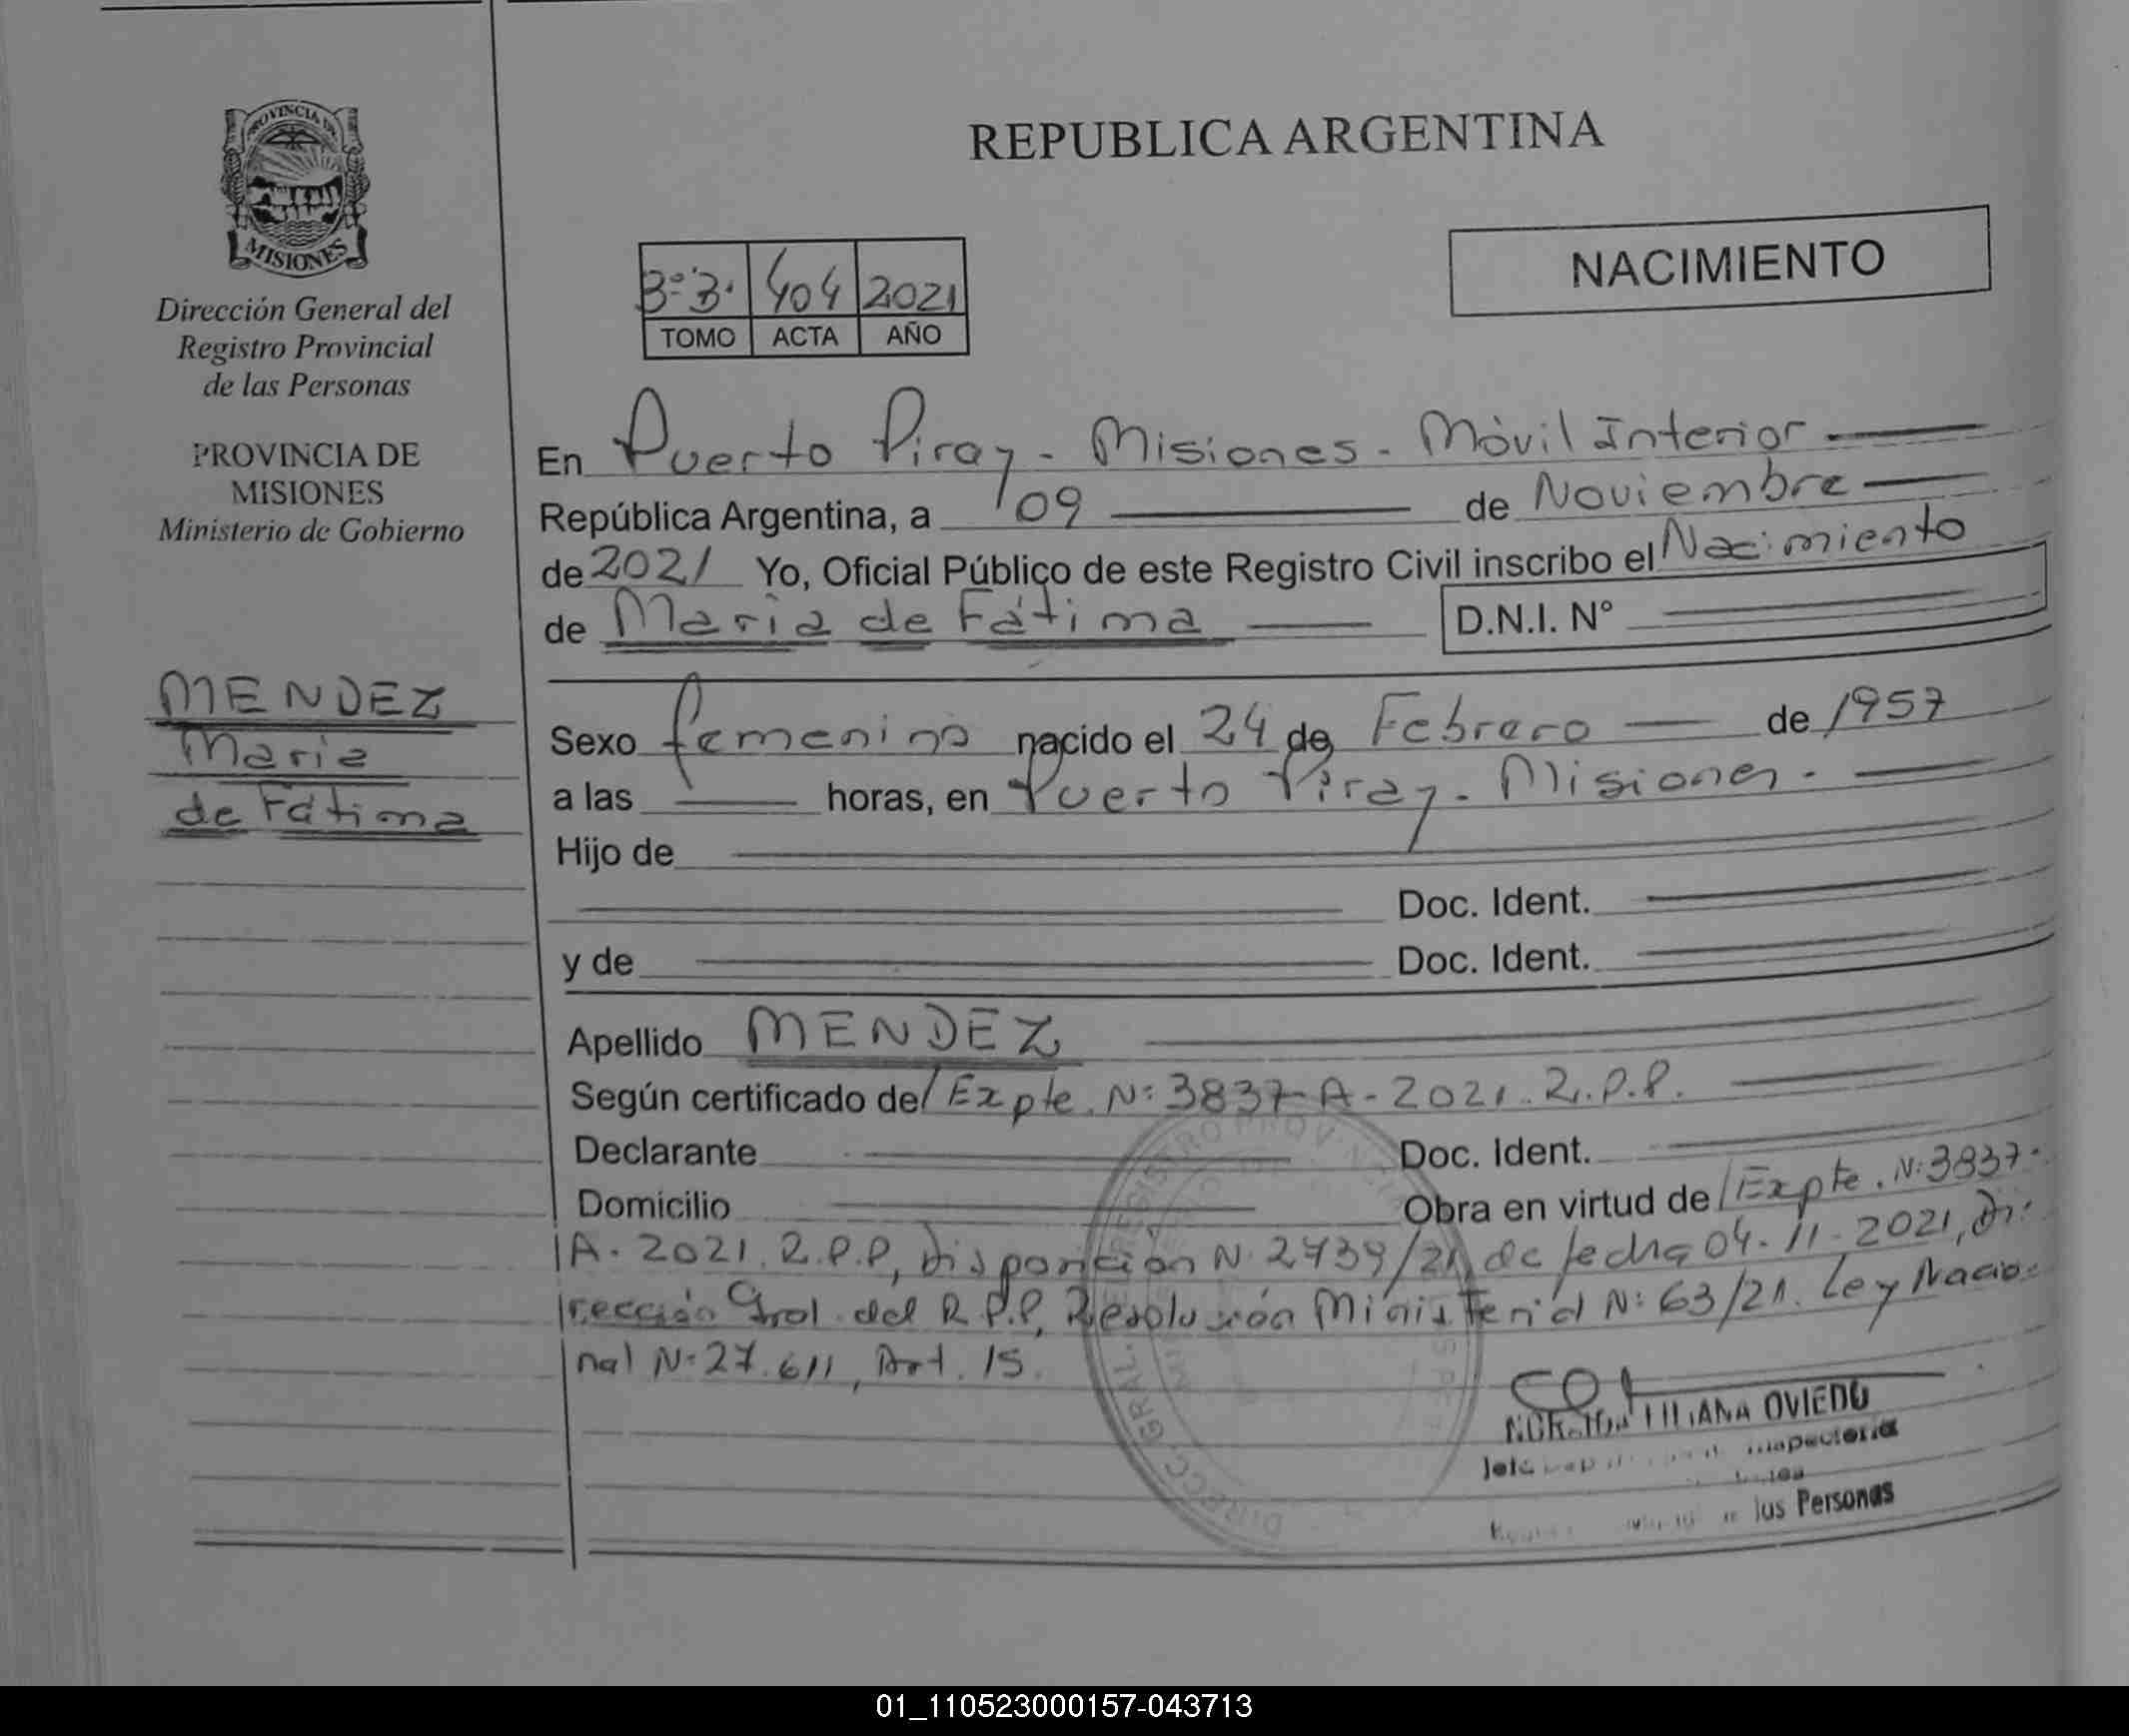 PROVINCIA DE
MISIONES
Dirección General del
Registro Provincial
de las Personas
PROVINCIA DE
MISIONES
Ministerio de Gobierno
MENDEZ
Maria
de Fátima
REPUBLICA ARGENTINA
NACIMIENTO
3º 3. 404 2021
TOMO ACTA AÑO
En Puerto Piray - Misiones - Móvil Interior
República Argentina, a 09 de Noviembre
de 2021 Yo, Oficial Público de este Registro Civil inscribo el Nacimiento
de Maria de Fátima D.N.I. Nº
Sexo femenino nacido el 24 de Febrero de 1957
a las horas, en Puerto Piray - Misiones -
Hijo de
Doc. Ident.
y de Doc. Ident.
Apellido MENDEZ
Según certificado de Expte. Nº 3837-A-2021. R.P.P.
Declarante Doc. Ident.
Domicilio Obra en virtud de Expte. Nº 3837-
A-2021. R.P.P, Disposición Nº 2739/21, de fecha 04-11-2021, Di-
rección Gral. del R.P.P, Resolución Ministerial Nº 63/21. Ley Nacio-
nal Nº 27.611, Art. 15.
LILIANA OVIEDO
Inspectoría
las Personas
01_110523000157-043713